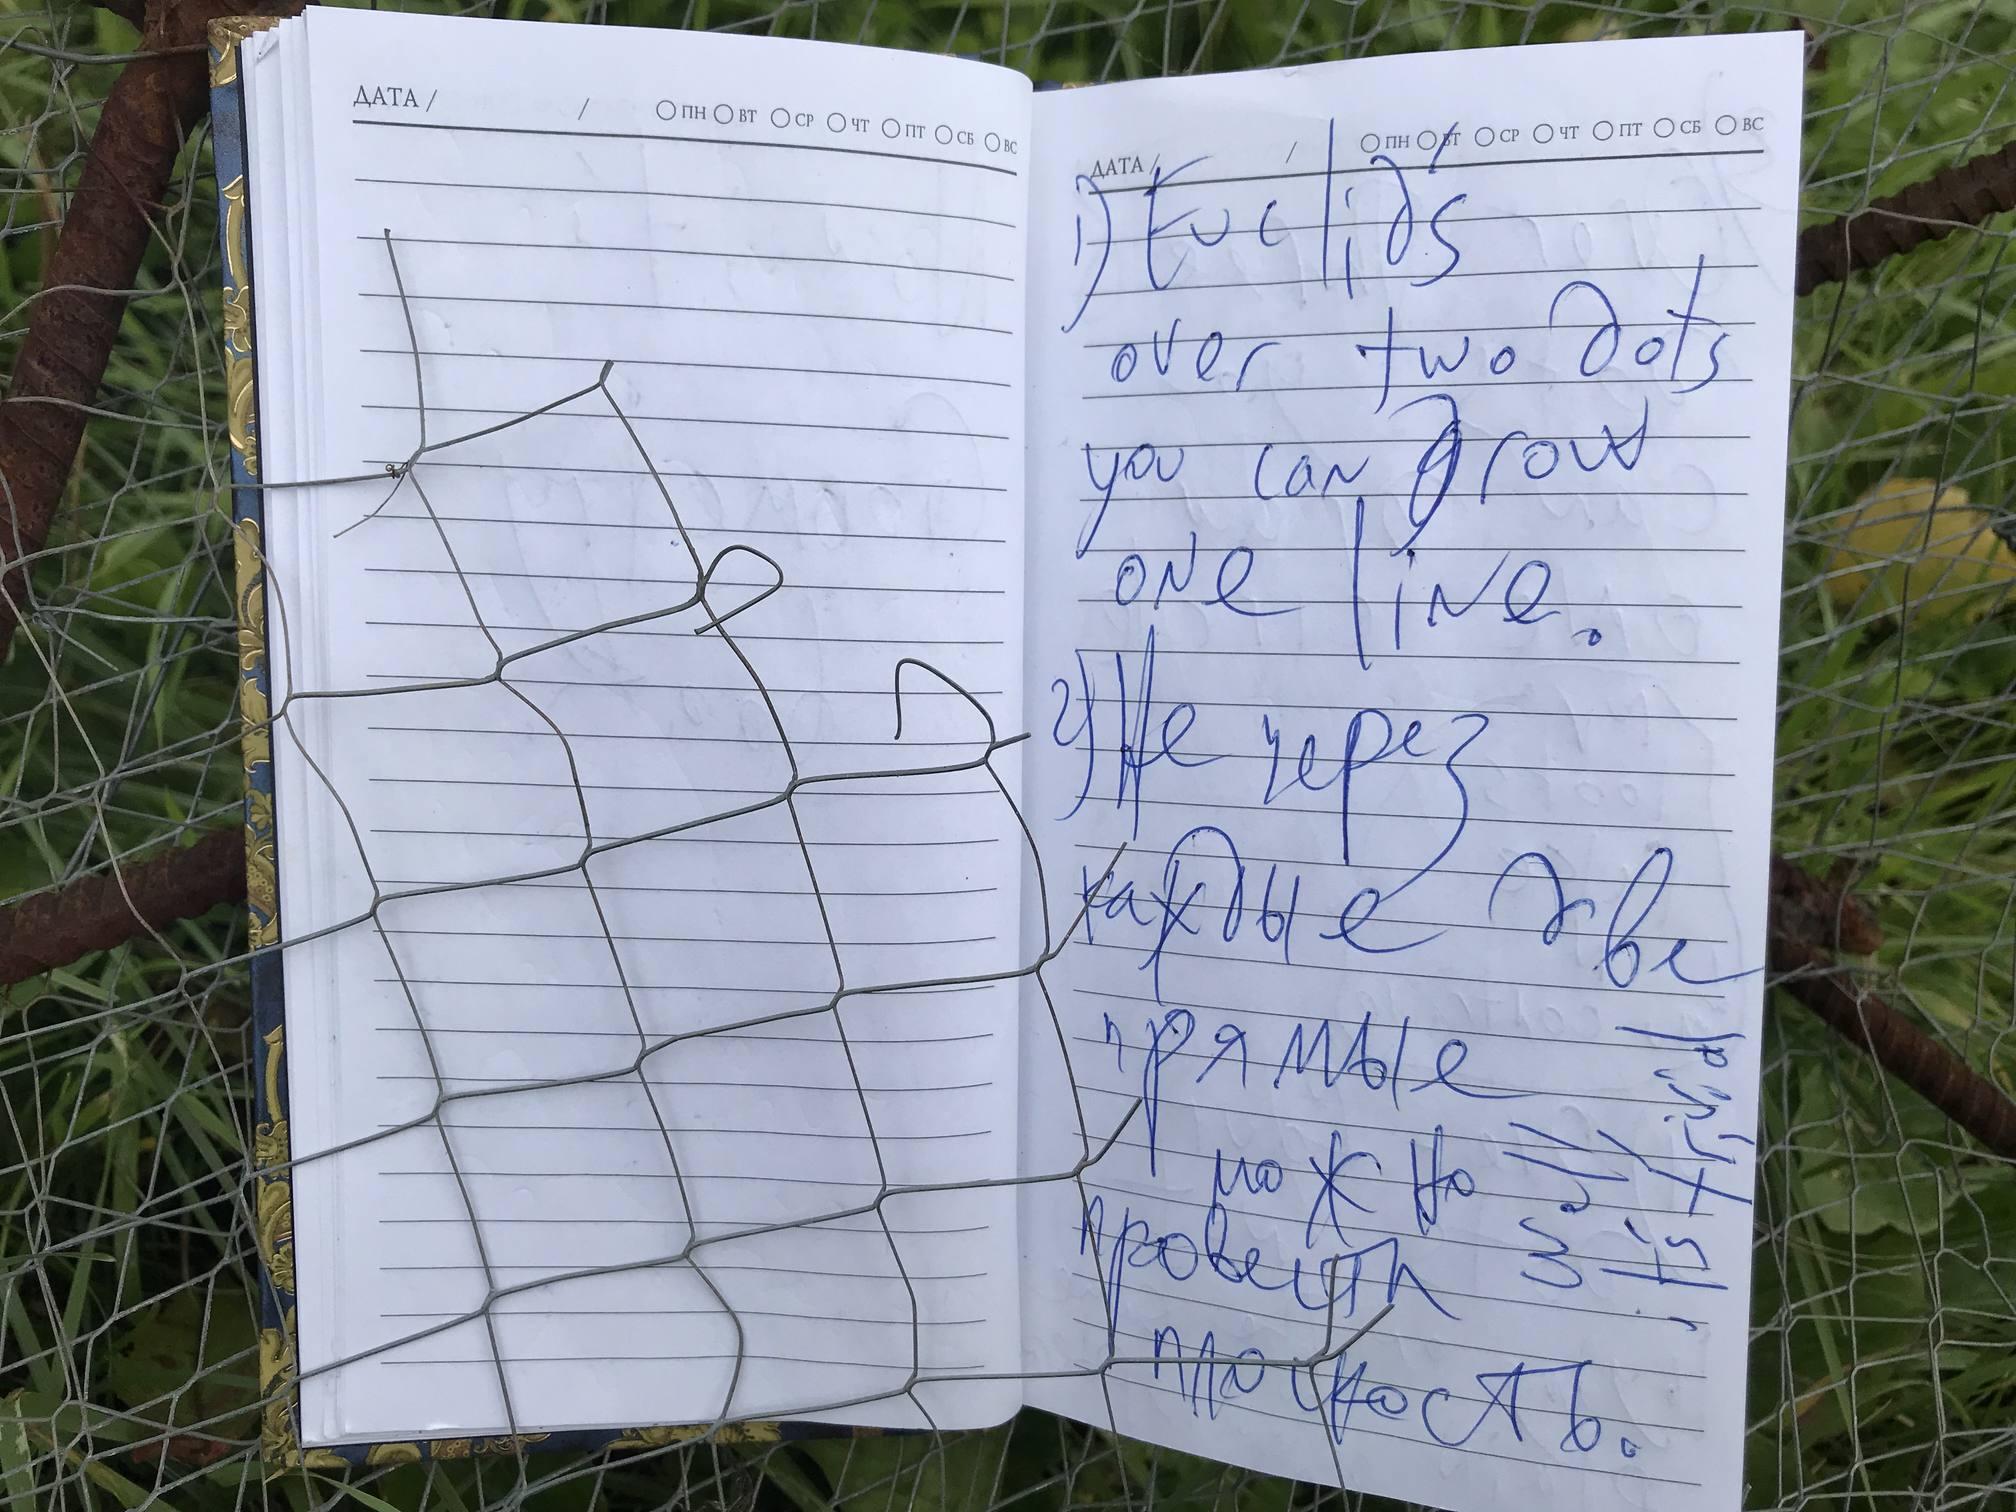 ДАТА / /
ПН ВТ СР ЧТ ПТ СБ ВС
ДАТА / /
ПН ВТ СР ЧТ ПТ СБ ВС
1) Euclid's
over two dots
you can grow
one line.
2) Не через
каждые две
прямые
можно
провести
плоскость.